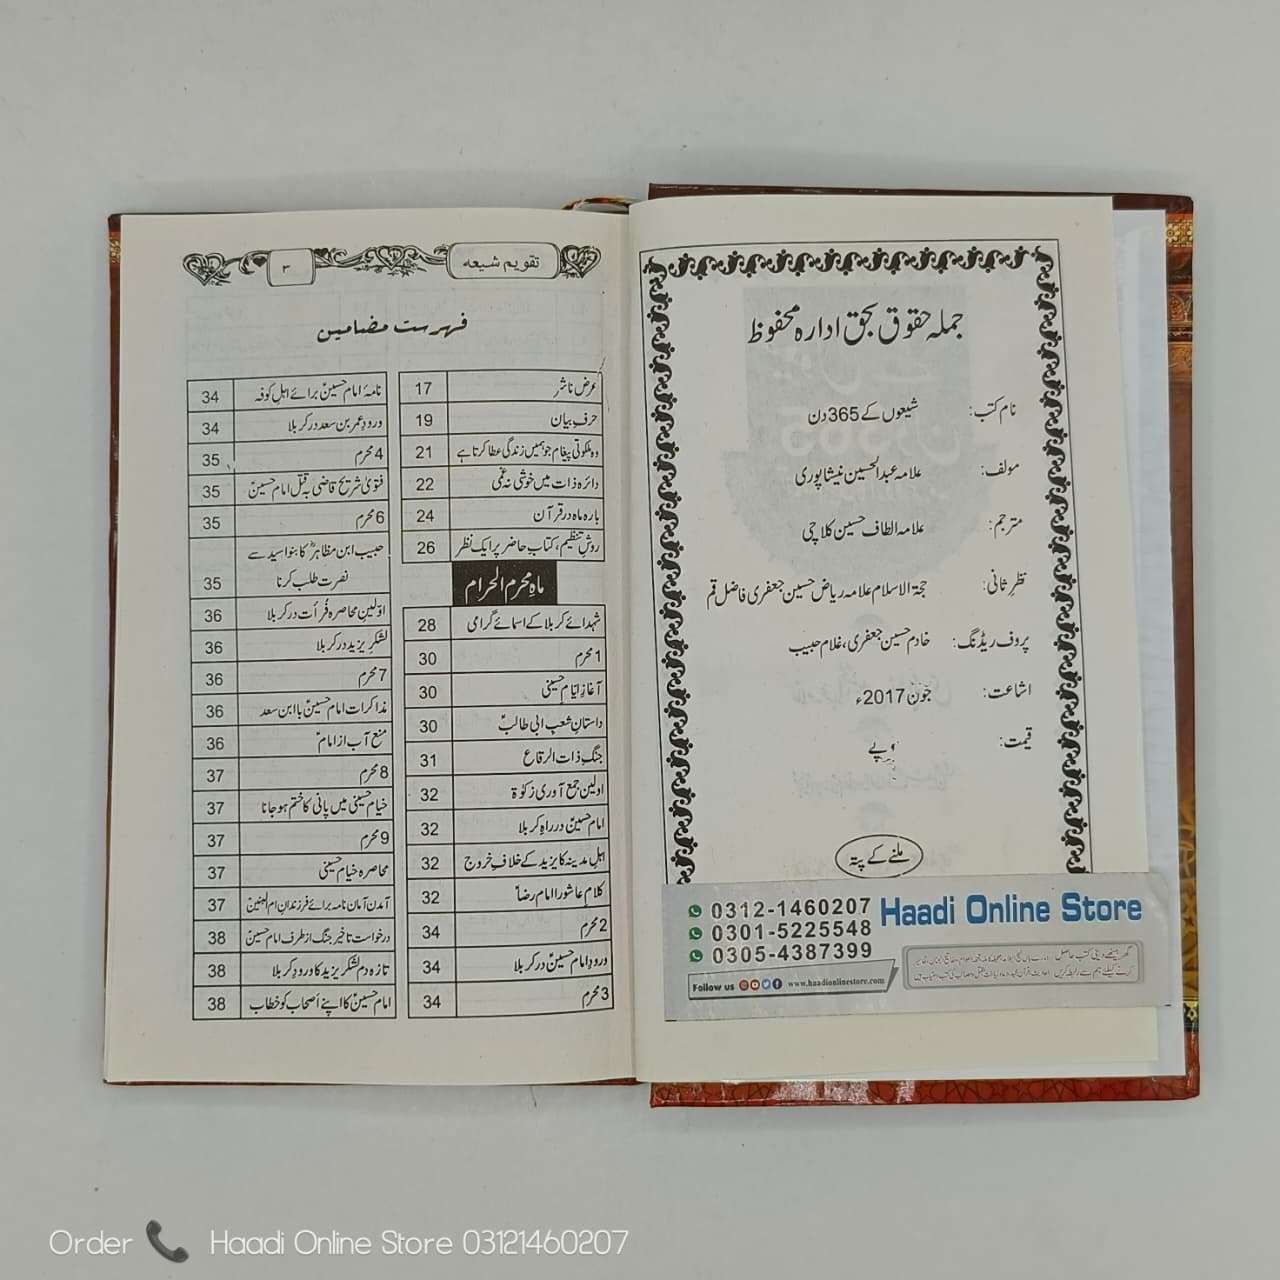 جملہ حقوق بحق ادارہ محفوظ
نام کتب: شیعوں کے 365 دن
مولف: علامہ عبدالحسین نیشاپوری
مترجم: علامہ الطاف حسین کلاچی
نظر ثانی: حجۃ الاسلام علامہ ریاض حسین جعفری فاضل قم
پروف ریڈنگ: خادم حسین جعفری، غلام حبیب
اشاعت: جون 2017ء
قیمت: روپے
ملنے کے پتہ
0312-1460207
0301-5225548
0305-4387399
Haadi Online Store
Follow us www.haadionlinestore.com
تقویم شیعہ ۳
فہرست مضامین
عرض ناشر 17
حرفِ بیان 19
وہ ملکوتی پیغام جو ہمیں زندگی عطا کرتا ہے 21
دائرہ ذات میں خوشی نہ غمی 22
بارہ ماہ در قرآن 24
روشِ تنظیم، کتاب حاضر پر ایک نظر 26
ماہِ محرم الحرام
شہدائے کربلا کے اسمائے گرامی 28
1 محرم 30
آغازِ ایامِ حسینی 30
داستانِ شعبِ ابی طالبؑ 30
جنگِ ذات الرقاع 31
اولین جمع آوری زکوٰۃ 32
امام حسینؑ در راہِ کربلا 32
اہلِ مدینہ کا یزید کے خلاف خروج 32
کلام عاشورا امام رضاؑ 32
2 محرم 34
ورودِ امام حسینؑ در کربلا 34
3 محرم 34
نامۂ امام حسینؑ برائے اہلِ کوفہ 34
ورودِ عمر بن سعد در کربلا 34
4 محرم 35
فتویٰ شریح قاضی بہ قتل امام حسینؑ 35
6 محرم 35
حبیب ابن مظاہرؓ کا بنو اسید سے
نصرت طلب کرنا 35
اوّلین محاصرہ فُرأت در کربلا 36
لشکرِ یزید در کربلا 36
7 محرم 36
مذاکرات امام حسینؑ با ابن سعد 36
منع آب از امامؑ 36
8 محرم 37
خیام حسینی میں پانی کا ختم ہو جانا 37
9 محرم 37
محاصرہ خیام حسینی 37
آمدن آمان نامہ برائے فرزندانِ ام البنینؑ 37
درخواست تاخیر جنگ از طرف امام حسینؑ 38
تازہ دم لشکرِ یزید کا ورودِ کربلا 38
امام حسینؑ کا اپنے اَصحاب کو خطاب 38
Order Haadi Online Store 03121460207